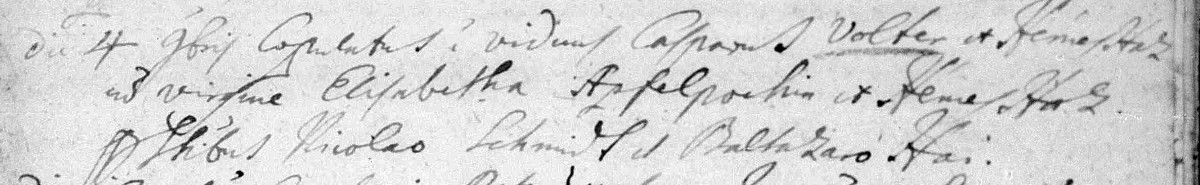 die 4 9bris Copulatus ē viduus Casparus Volter ex Nemes Ház
cū virgine Elisabetha Apfelpockin ex Nemes Hááz.
Ttibus Nicolao Schmidt et Baltazaro Hai.